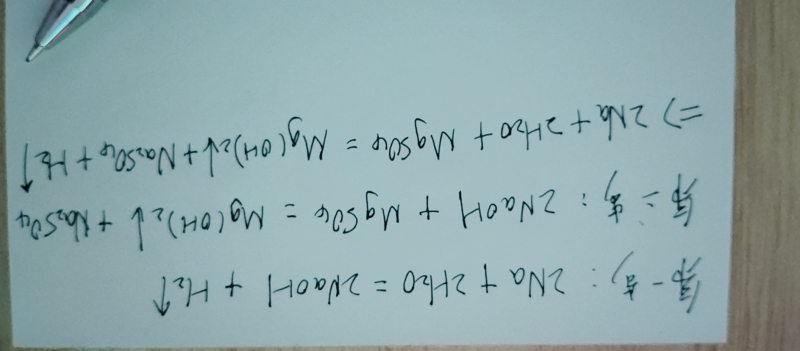 第一步: 2Na + 2H2O = 2NaOH + H2↑
第二步: 2NaOH + MgSO4 = Mg(OH)2↓ + Na2SO4
=> 2Na + 2H2O + MgSO4 = Mg(OH)2↓ + Na2SO4 + H2↑